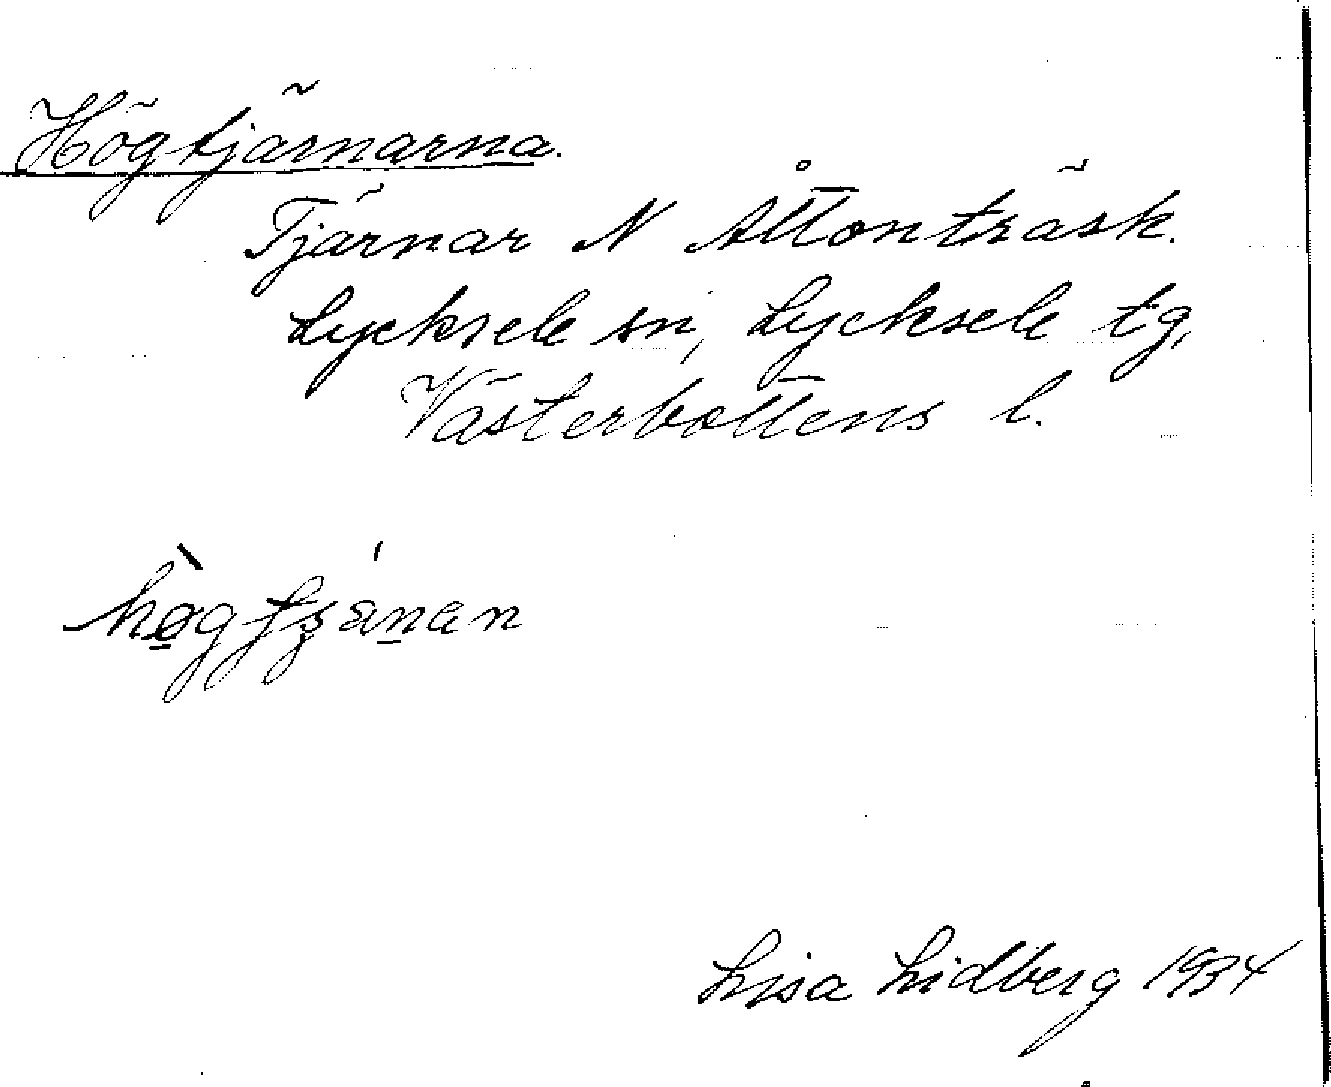 Högtjärnarna.
Tjärnar N Åttonträsk.
Lycksele sn, Lycksele tg,
Västerbottens l.
Lisa Lidberg 1934